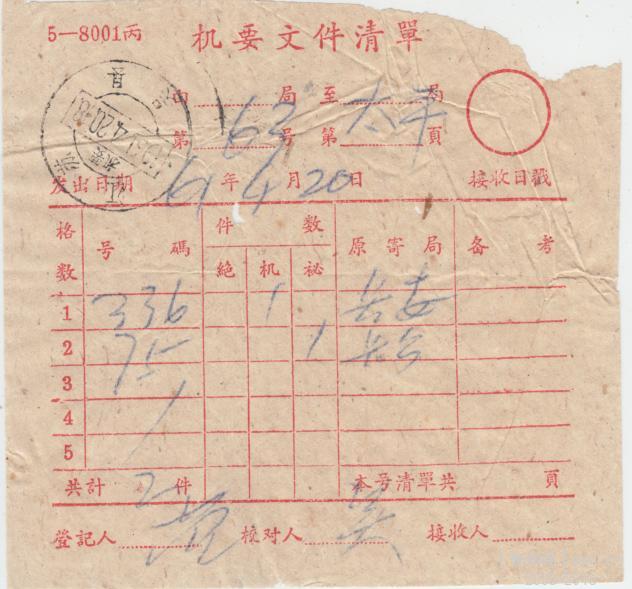 5—8001丙 机要文件清單
由 局 至 太平 局
第 63 号 第 頁
发出日期 61 年 4 月 20 日 接收日戳
格数 号碼 件数 原寄局 备考
絕 机 祕
1 336 1
2 75 1
3
4
5
共計 2 件 本号清單共 頁
登記人 校对人 吴 接收人